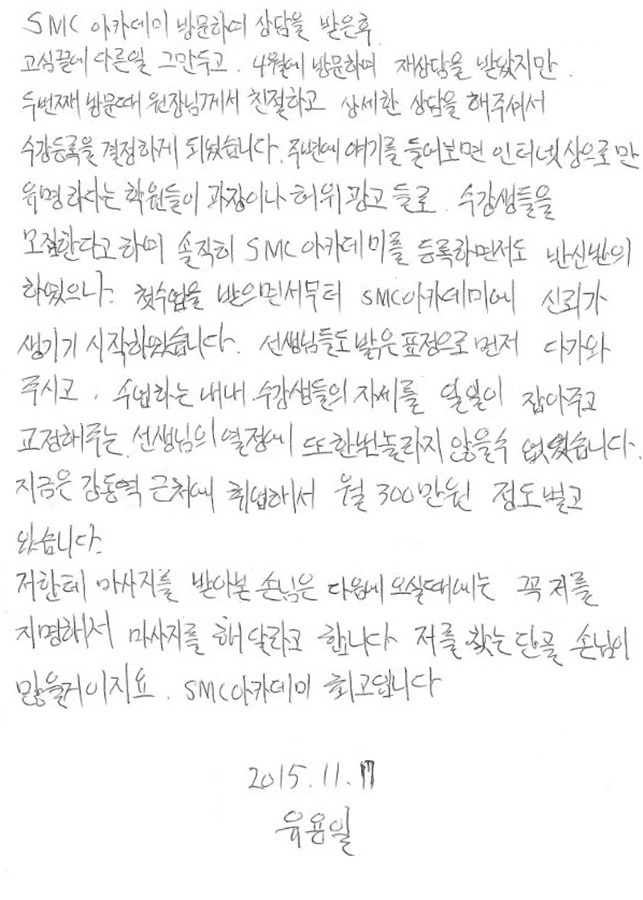 SMC 아카데미 방문하여 상담을 받은후
고심끝에 다른일 그만두고. 4월에 방문하여 재상담을 받았지만.
두번째 방문때 원장님께서 친절하고 상세한 상담을 해주셔서
수강등록을 결정하게 되었습니다. 주변에 얘기를 들어보면 인터넷상으로만
유명하다는 학원들이 과장이나 허위 광고 들로. 수강생들을
모집한다고하며 솔직히 SMC아카데미를 등록하면서도 반신반의
하였으나. 첫수업을 받으면서부터 SMC아카데미에 신뢰가
생기기 시작하였습니다. 선생님들도 밝은표정으로 먼저 다가와
주시고. 수업하는내내 수강생들의 자세를 일일이 잡아주고
교정해주는 선생님의 열정에 또한번놀라지 않을수 없었습니다.
지금은 강동역 근처에 취업해서 월 300만원 정도벌고
있습니다.
저한테 마사지를 받아본 손님은 다음에 오실때에는 꼭 저를
지명해서 마사지를 해달라고 합니다 저를 찾는 단골 손님이
많을거이지요. SMC아카데미 최고입니다
2015.11.17
유용일